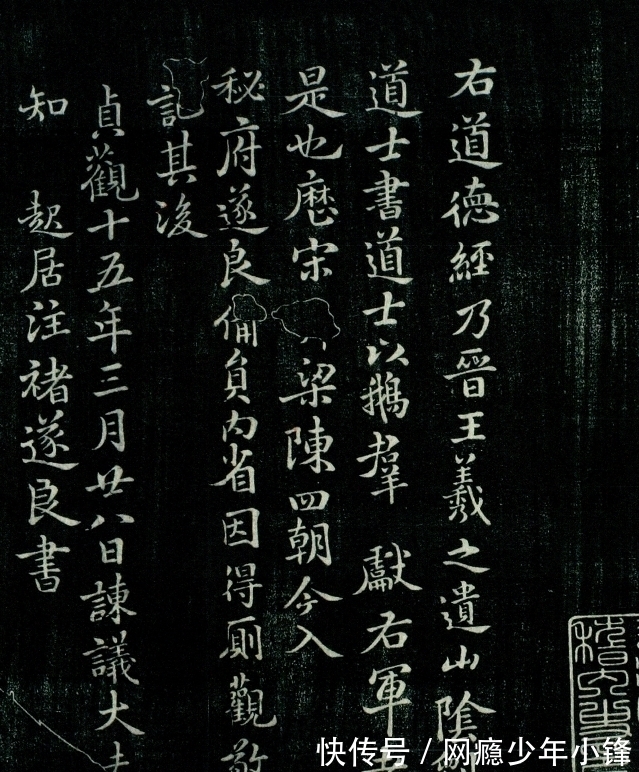 右道德經乃晉王羲之遺山陰
道士書道士以鵝群獻右軍
是也歷宋梁陳四朝今入
秘府遂良備員內省因得厠觀敬
記其後
貞觀十五年三月廿八日諫議大夫
知起居注褚遂良書
快传号/网瘾少年小锋